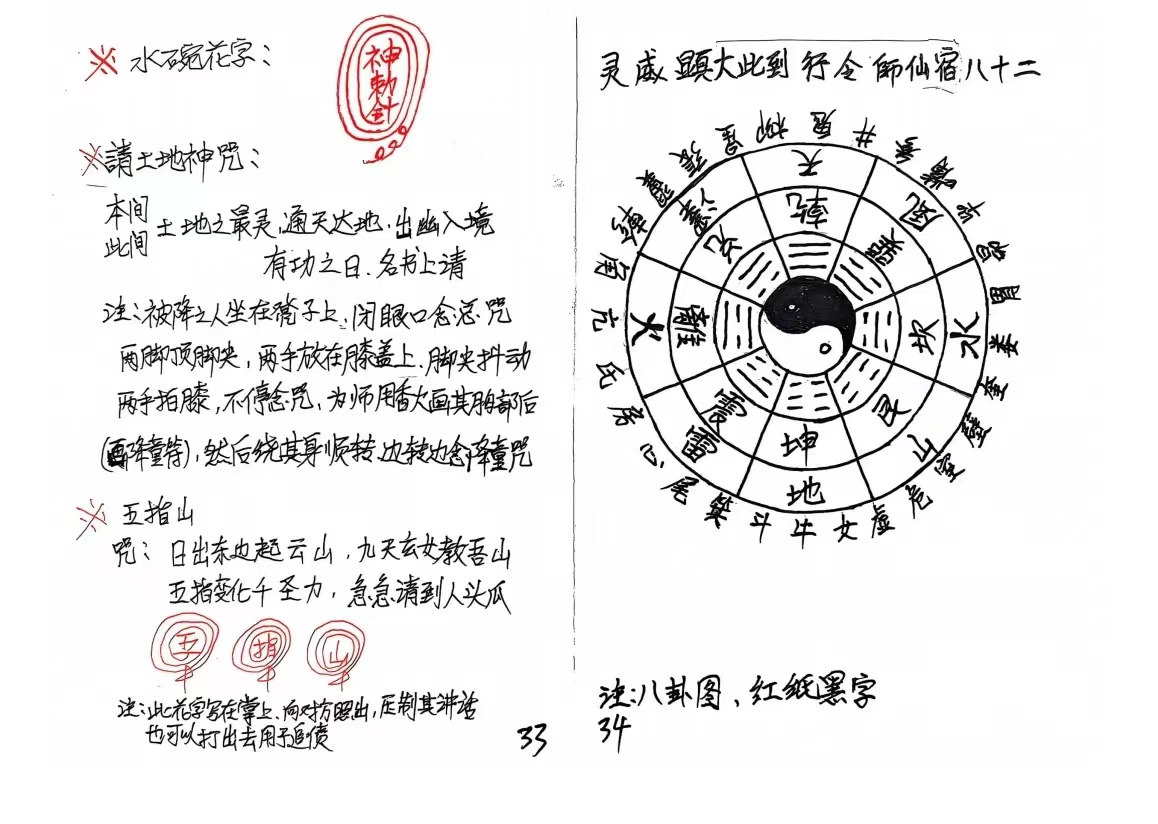 ※ 水碗花字：
神
勅
針
※ 請土地神咒：
本间
此间
土地之最灵，通天达地，出幽入境
有功之日、名书上请
注：被降之人坐在凳子上，闭眼口念总咒
两脚顶脚尖，两手放在膝盖上、脚尖抖动
两手拍膝，不停念咒，为师用香火画其胸部后
(画降童符)，然后绕其身顺转、边转边念降童咒
※ 五指山
咒：日出东边起云山，九天玄女教吾山
五指变化千圣力，急急请到人头瓜
五 指 山
注：此花字写在掌上、向对方照出，压制其讲话
也可以打出去用于追债
33
灵威顯大此到行令師仙宿八十二
井 鬼 柳 星 張 翼 軫 角 亢 氐 房 心 尾 箕 斗 牛 女 虚 危 室 壁 奎 婁 胃 昴 毕 嘴 參
天 風 水 山 地 雷 火
乾 巽 坎 艮 坤 震 離 兑
注：八卦图、红纸黑字
34